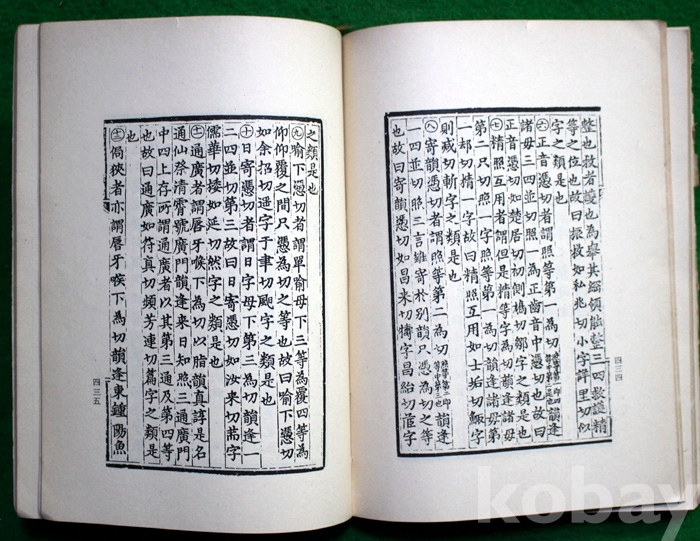 整也救者護也為舉其綱領能整三四救護精
等之位也故曰振救如私兆切小字詳里切似
字之類是也
㊅正音憑切者謂照等第一為切韻逢
諸母三四並切照一為正齒音中憑切也故曰
正音憑切如楚居切初側鳩切鄒字之類是也
㊆精照互用者謂但是精等字為切韻逢諸母第
二只切照一字照等第一為切韻逢諸母第
一却切精一字故曰精照互用如士垢切鯫字
則減切斬字之類是也
㊇寄韻憑切者謂照等第二為切韻逢
一四並切照三言雖寄於別韻只憑為切之等
也故曰寄韻憑切如昌來切犨字昌給切茝字
四三四
之類是也
㊈喻下憑切者謂單喻母下三等為覆四等為
仰仰覆之間只憑為切之等也故曰喻下憑切
如余招切遥字于聿切颶字之類是也
㊉日寄憑切者謂日字母下第三為切韻逢一
二四並切第三故曰日寄憑切如汝來切荋字
儒華切捼如延切然字之類是也
通廣者謂脣牙喉下為切以脂韻真諄是名
通仙祭清宵號廣門韻逢來日知照三通廣門
中四上存所謂通廣者以其第三通及第四等
也故曰通廣如符真切頻芳連切篇字之類是
也
侷狹者亦謂脣牙喉下為切韻逢東鍾陽魚
四三五
kobay